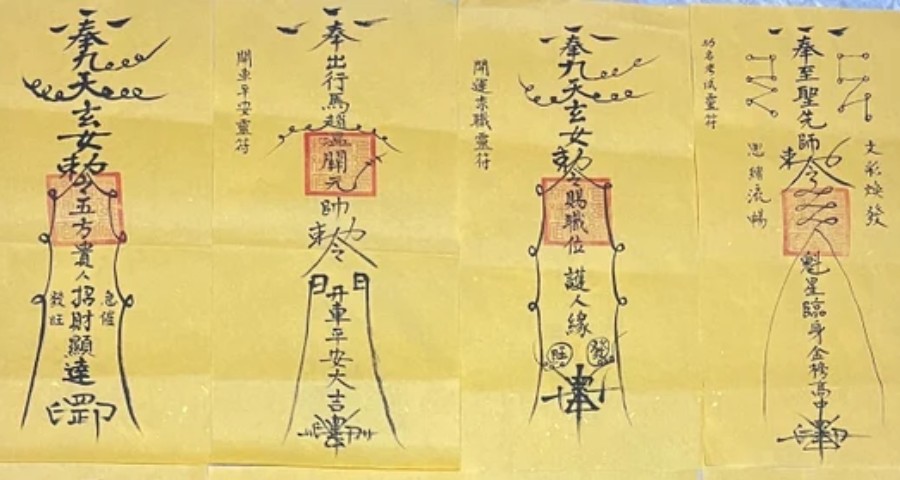 奉九天玄女勅令五方貴人招財顯達
急催
發旺
罡印
開車平安靈符
奉出行馬趙
關元帥勅令
日日
開車平安大吉
開運求職靈符
奉九天玄女勅令賜職位護人緣
發
旺
功名考試靈符
奉至聖先師勅令
魁星臨身金榜高中
文彩煥發
思緒流暢